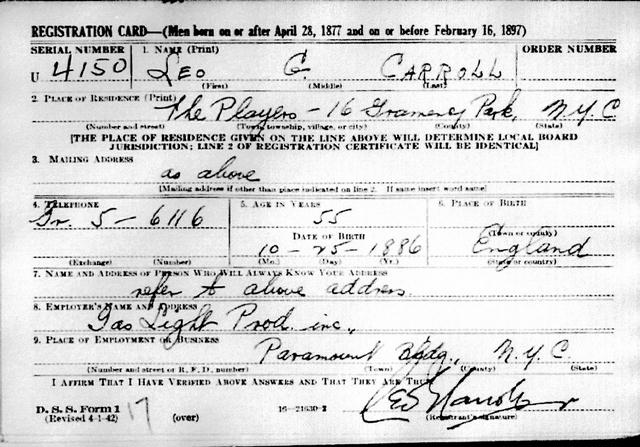 REGISTRATION CARD—(Men born on or after April 28, 1877 and on or before February 16, 1897)
SERIAL NUMBER 1. NAME (Print) ORDER NUMBER
U 4150 LEO G. CARROLL
(First) (Middle) (Last)
2. PLACE OF RESIDENCE (Print)
The Players - 16 Gramercy Park, N.Y.C
(Number and street) (Town, township, village, or city) (County) (State)
[THE PLACE OF RESIDENCE GIVEN ON THE LINE ABOVE WILL DETERMINE LOCAL BOARD
JURISDICTION; LINE 2 OF REGISTRATION CERTIFICATE WILL BE IDENTICAL]
3. MAILING ADDRESS
as above
[Mailing address if other than place indicated on line 2. If same insert word same]
4. TELEPHONE 5. AGE IN YEARS 6. PLACE OF BIRTH
Gr. 5-6116 55
DATE OF BIRTH (Town or county)
10-25-1886 England
(Exchange) (Number) (Mo.) (Day) (Yr.) (State or country)
7. NAME AND ADDRESS OF PERSON WHO WILL ALWAYS KNOW YOUR ADDRESS
refer to above address
8. EMPLOYER'S NAME AND ADDRESS
Gas Light Prod. inc.,
9. PLACE OF EMPLOYMENT OR BUSINESS
Paramount Bldg., N.Y.C.
(Number and street or R. F. D. number) (Town) (County) (State)
I AFFIRM THAT I HAVE VERIFIED ABOVE ANSWERS AND THAT THEY ARE TRUE.
D. S. S. Form 1 17 Leo G Carroll
(Revised 4-1-42) (over) 16—21630-2 (Registrant's signature)